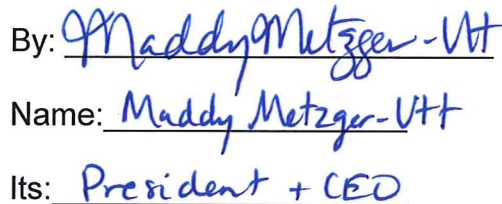 By: Maddy Metzger-Utt
Name: Maddy Metzger-Utt
Its: President + CEO